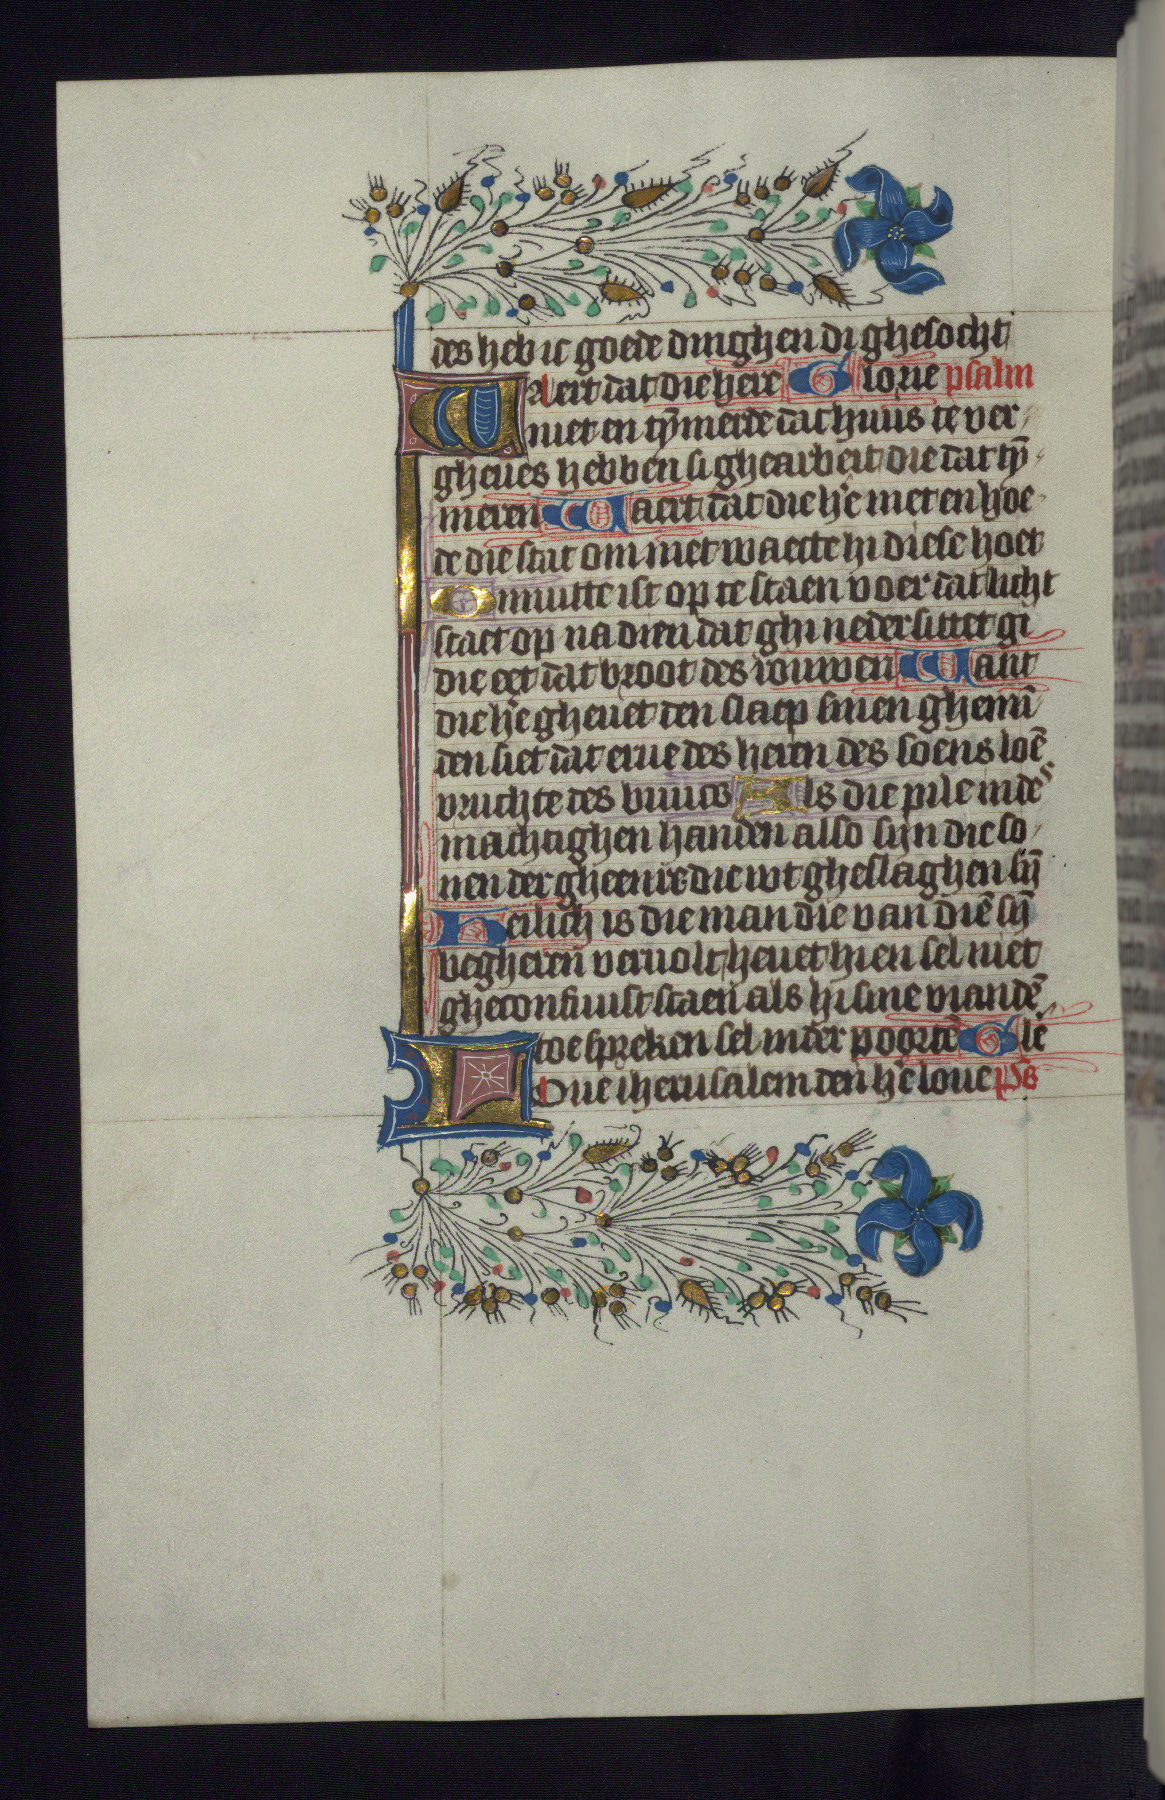 des heb ic goede dinghen di ghesocht
WAert dat die here Glorie psalm
niet en tȳmerde dat huus te ver
gheues hebben si ghearbeit die dat tȳ
meren Waert dat die hē niet en hoe
de die stat om niet waecte hi diese hoet
Onnutte ist op te staen voer dat licht
staet op na dien dat ghi neder sittet gi
die eet dat broot des rouwen Want
die hē gheuet den slaep sinen ghemī
den siet dat erue des heren des soens loē
vruchte des buucs Als die pile inder
machtighen handen also sijn die so
nen der gheenre die wt gheslaghen sȳ
Heilich is die man die van diē sȳ
begheren veruolt heuet hi en sel niet
gheconfuust staen als hi sine viandē
toe spreken sel inder poortē Glē
LOue iherusalem den hē loue ps